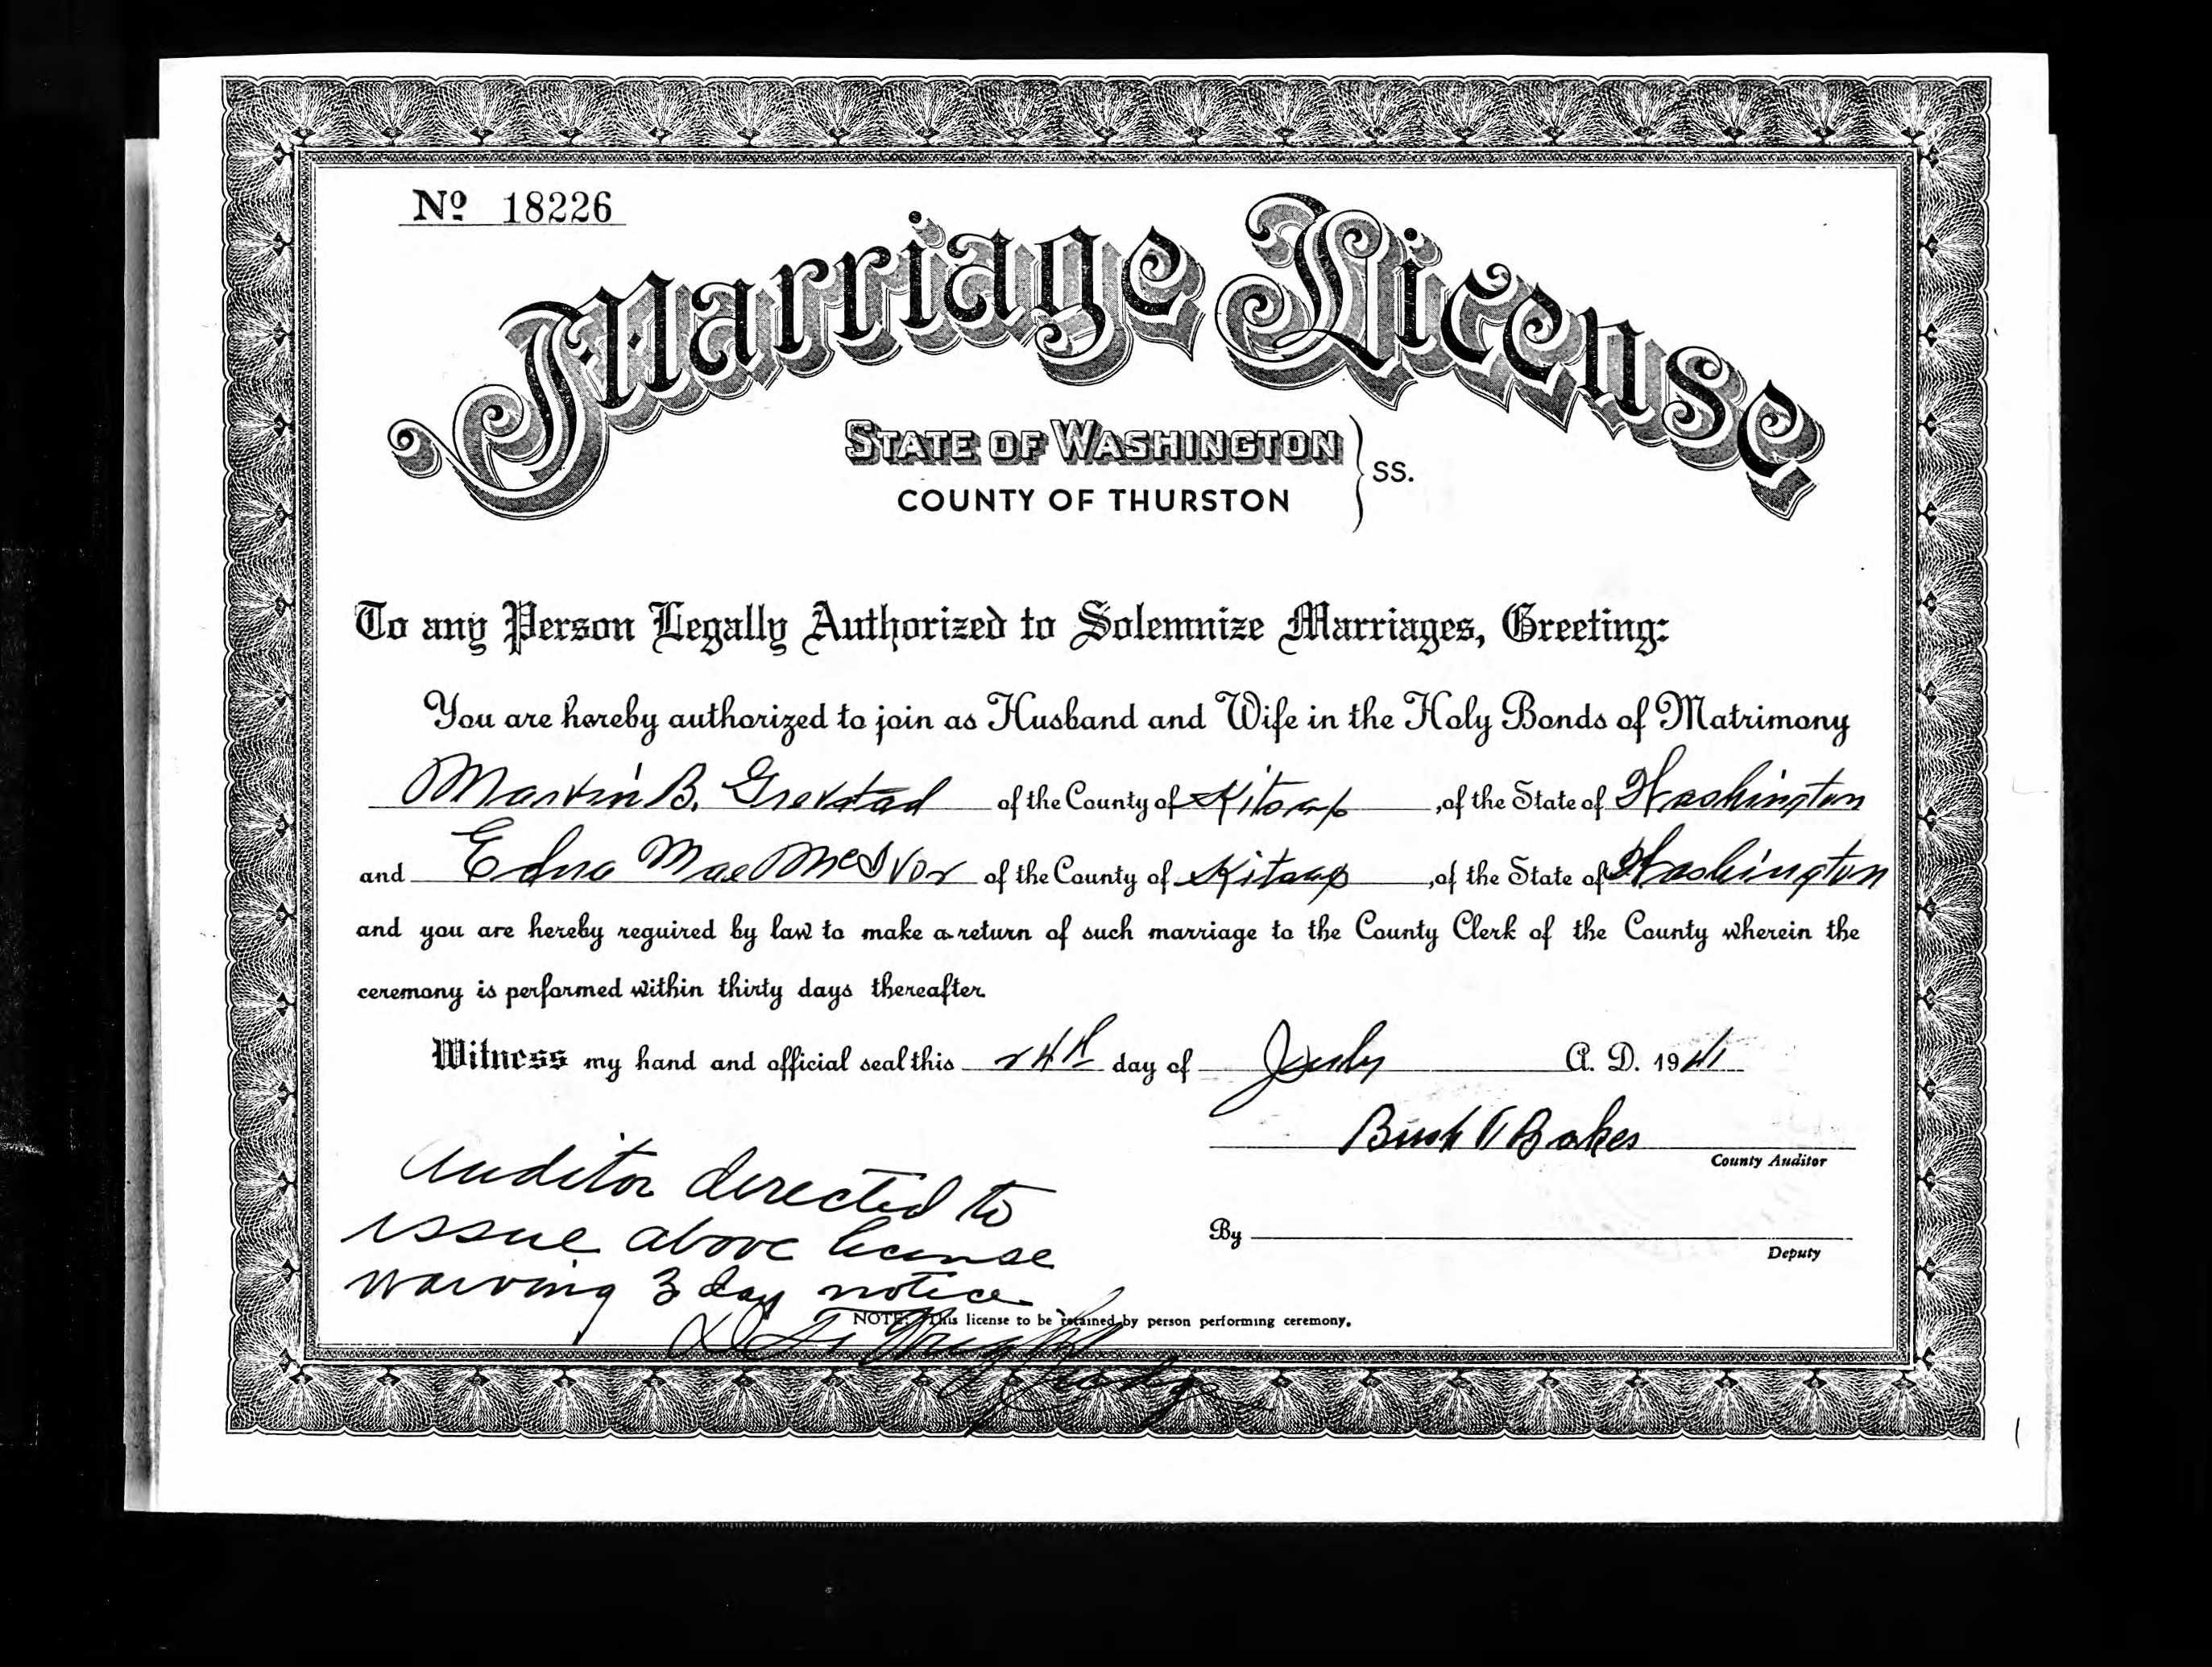 Nº 18226
Marriage License
STATE OF WASHINGTON
COUNTY OF THURSTON } SS.
To any Person Legally Authorized to Solemnize Marriages, Greeting:
You are hereby authorized to join as Husband and Wife in the Holy Bonds of Matrimony
Marvin B. Grevstad of the County of Kitsap, of the State of Washington
and Edna Mae McIvor of the County of Kitsap, of the State of Washington
and you are hereby required by law to make a return of such marriage to the County Clerk of the County wherein the
ceremony is performed within thirty days thereafter.
Witness my hand and official seal this 24th day of July A. D. 1941
Bush Baker
County Auditor
Auditor directed to
issue above license
waiving 3 day notice
By
Deputy
NOTE: This license to be retained by person performing ceremony.
D. F. Wright
Judge